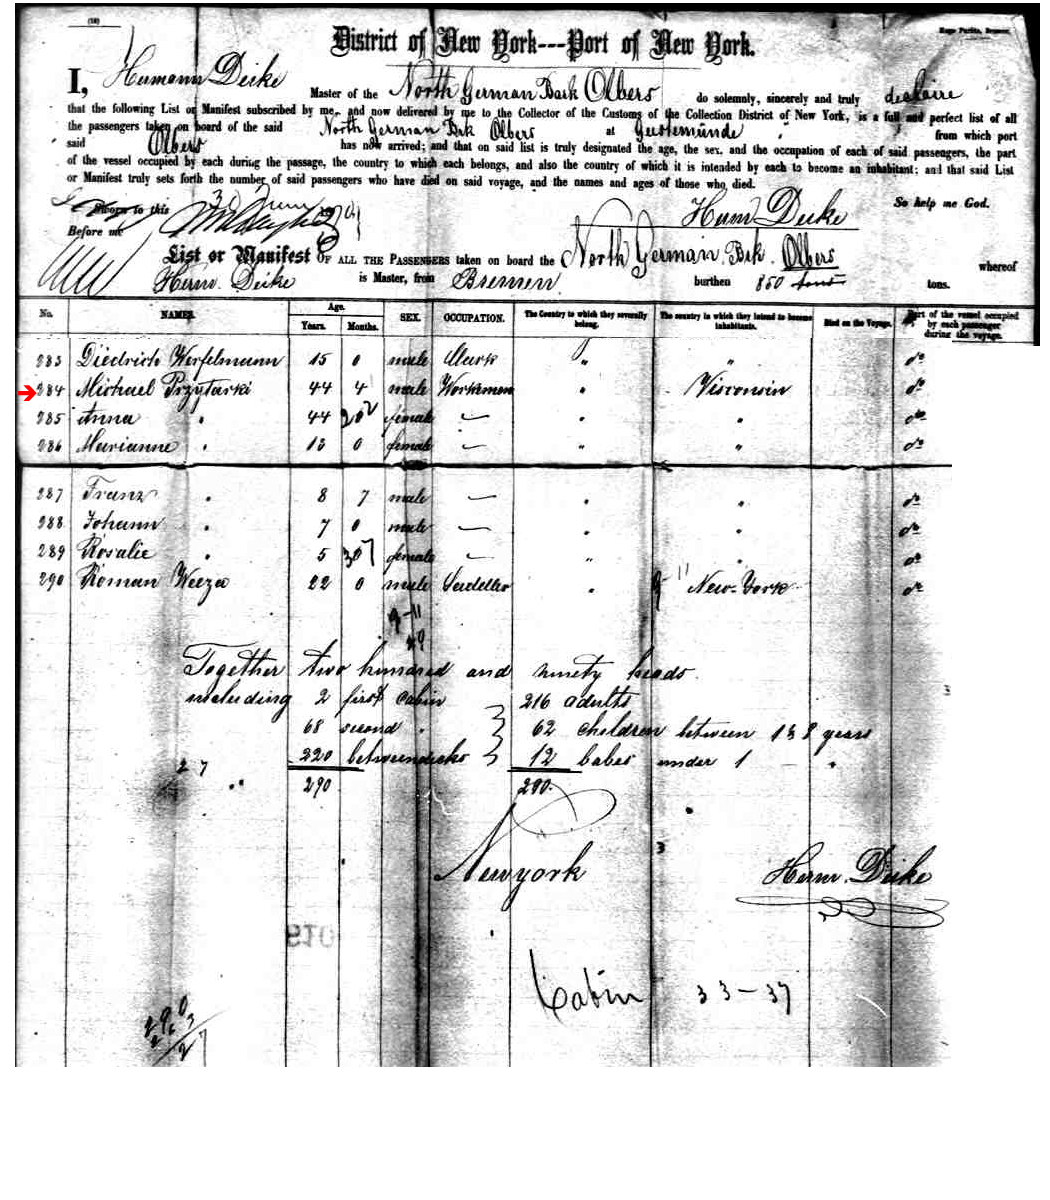 (18)
Hugo Parthie, Bremen.
District of New York---Port of New York.
I, Hermann Dirke Master of the North German Bark Olbers do solemnly, sincerely and truly declaire
that the following List or Manifest subscribed by me, and now delivered by me to the Collector of the Customs of the Collection District of New York, is a full and perfect list of all
the passengers taken on board of the said North German Brk Olbers at Geestemünde from which port
said Olbers has now arrived; and that on said list is truly designated the age, the sex, and the occupation of each of said passengers, the part
of the vessel occupied by each during the passage, the country to which each belongs, and also the country of which it is intended by each to become an inhabitant; and that said List
or Manifest truly sets forth the number of said passengers who have died on said voyage, and the names and ages of those who died.
Sworn to this 30 Herm Dirke So help me God.
Before me
List or Manifest OF ALL THE PASSENGERS taken on board the North German Brk. Olbers whereof
Herm. Dirke is Master, from Bremen burthen 850 tons tons.
No. NAMES. Age. Years. Months. SEX. OCCUPATION. The Country to which they severally belong. The country in which they intend to become inhabitants. Died on the Voyage. Part of the vessel occupied by each passenger during the voyage.
283 Diedrich Werfelmann 15 0 male Clark " " do
284 Michael Przytarski 44 4 male Workman " Wisconsin do
285 Anna " 44 female — " " do
286 Marianne " 13 0 female — " " do
287 Franz " 8 7 male — " " do
288 Johann " 7 0 male — " " do
289 Rosalie " 5 female — " " do
290 Roman Weeza 22 0 male Saddler " New-York do
Together two hundred and ninety heads.
including 2 first cabin 216 adults
68 second " 62 children between 1 & 8 years
220 betweendecks 12 babes under 1 — "
27
290 290.
Newyork Herm. Dirke
019
Cabin 33-37